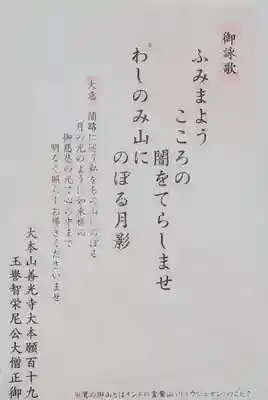 御詠歌
ふみまよう
こころの
闇をてらしませ
わしのみ山に
のぼる月影
大意
闇路に迷う私をも山にのぼる
月の光のように如来様の
御慈悲の光で心の中まで
明るく照らしお導きくださいませ
大本山善光寺大本願百十九
玉誉智栄尼公大僧正御
※鷲の御山とはインドの霊鷲山(りょうじゅせん)のことで